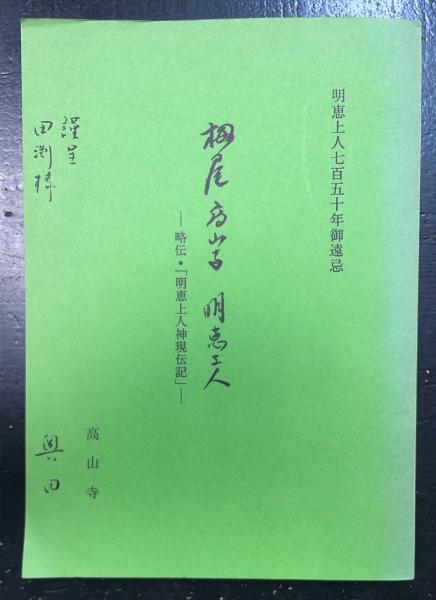 明恵上人七百五十年御遠忌
栂尾高山寺 明恵上人
―略伝・「明恵上人神現伝記」―
高山寺
謹呈
田渕様
奥田